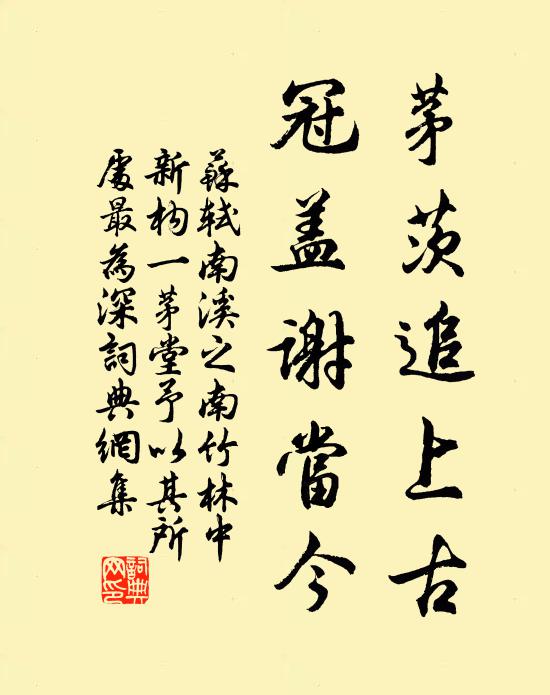 茅茨追上古
冠盖謝當今
蘇軾南溪之南竹林中
新构一茅堂予以其所
處最為深詞典網集
詞典网印